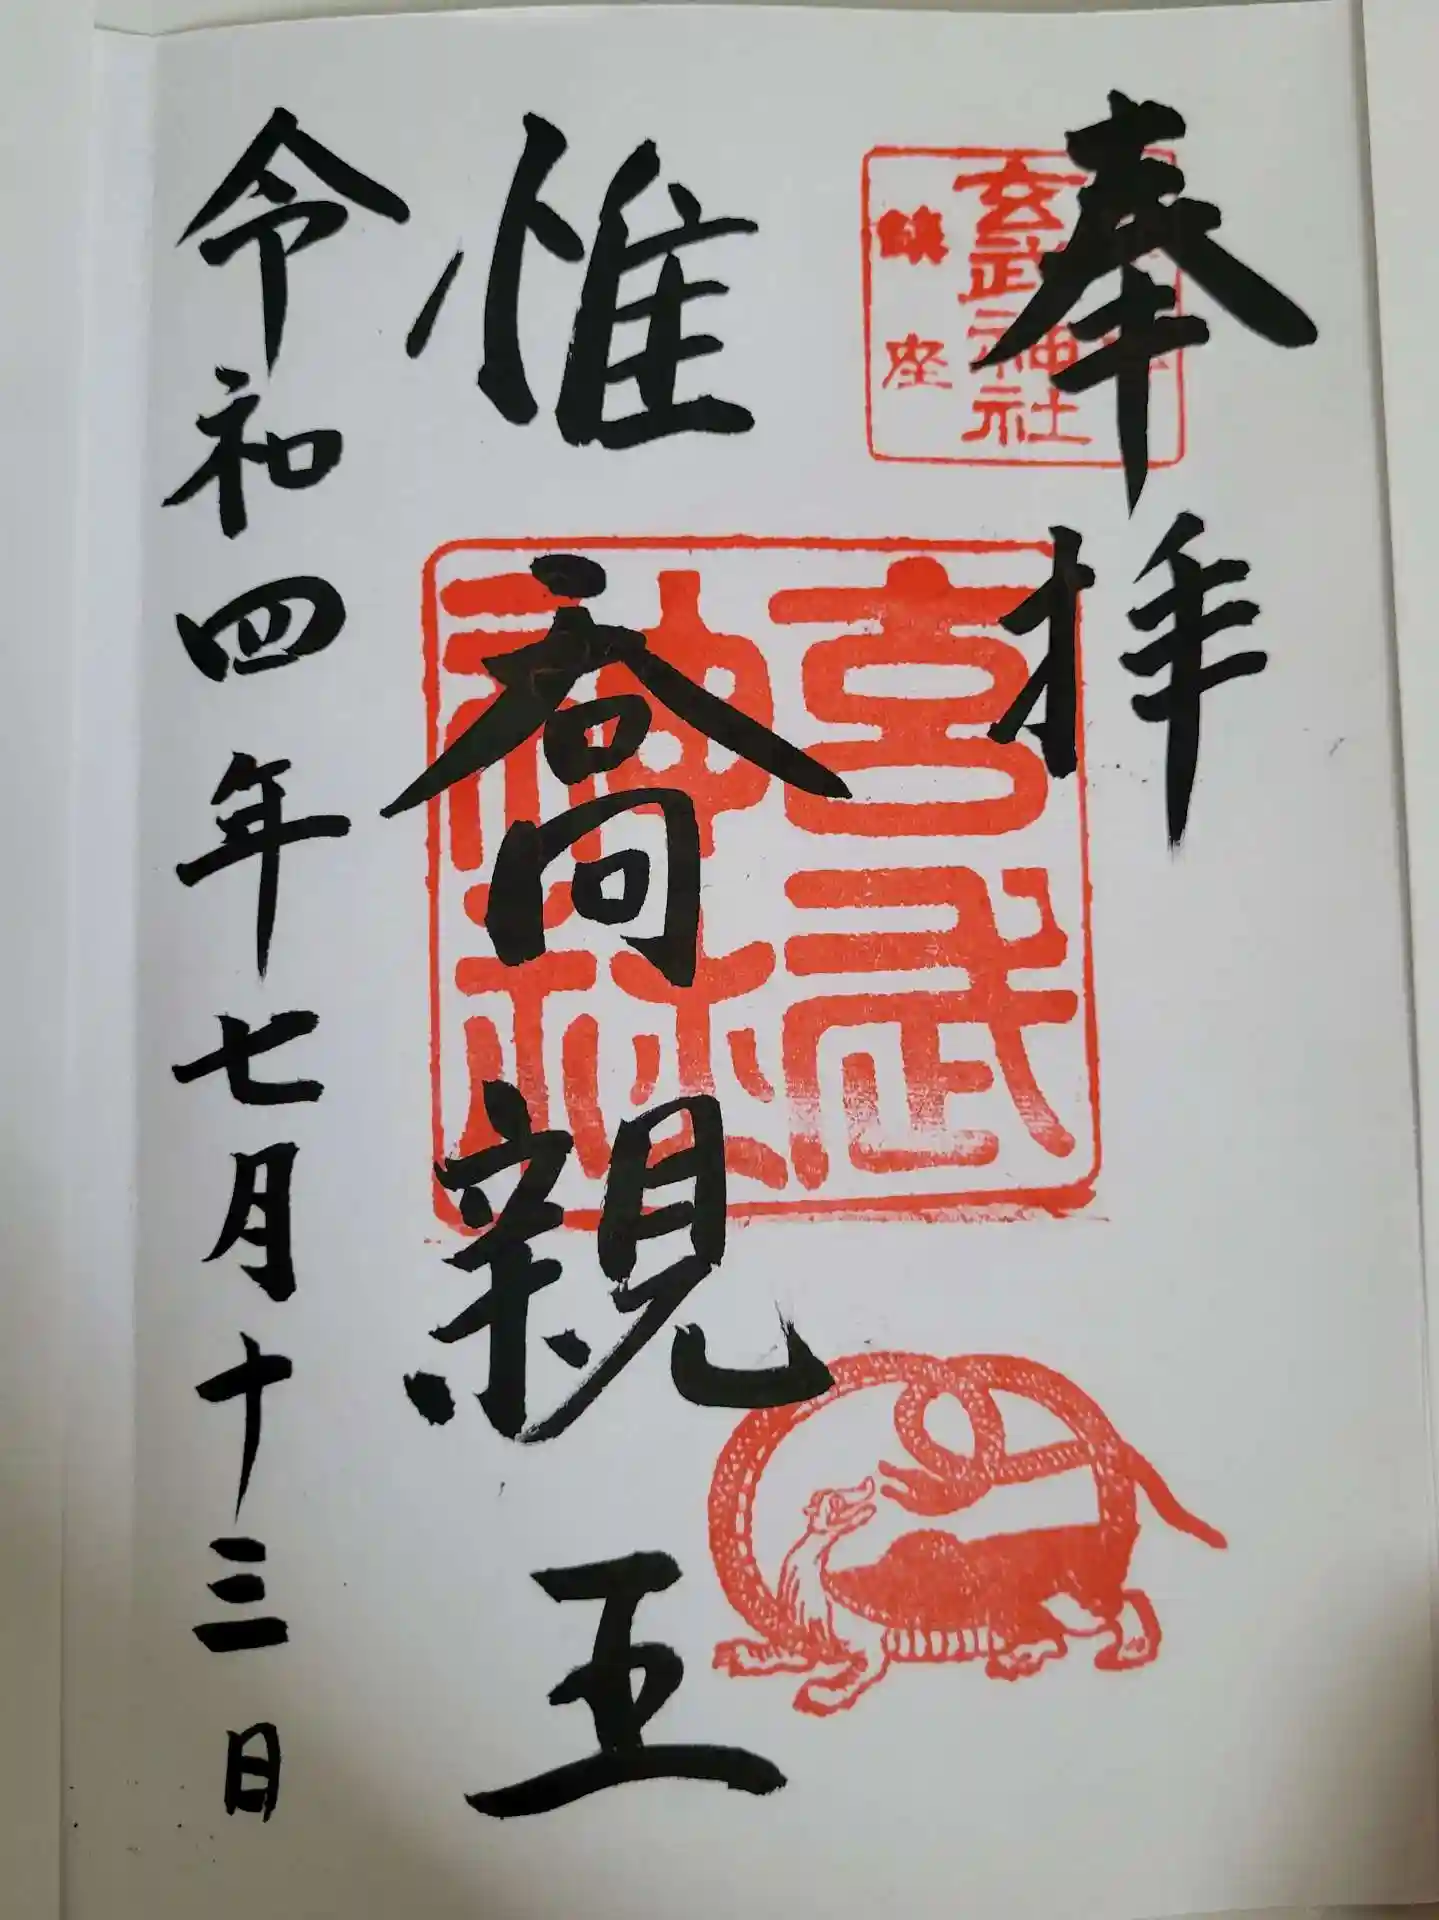 奉拝
玄武神社
鎮座
玄武神社
惟喬親王
令和四年七月十三日